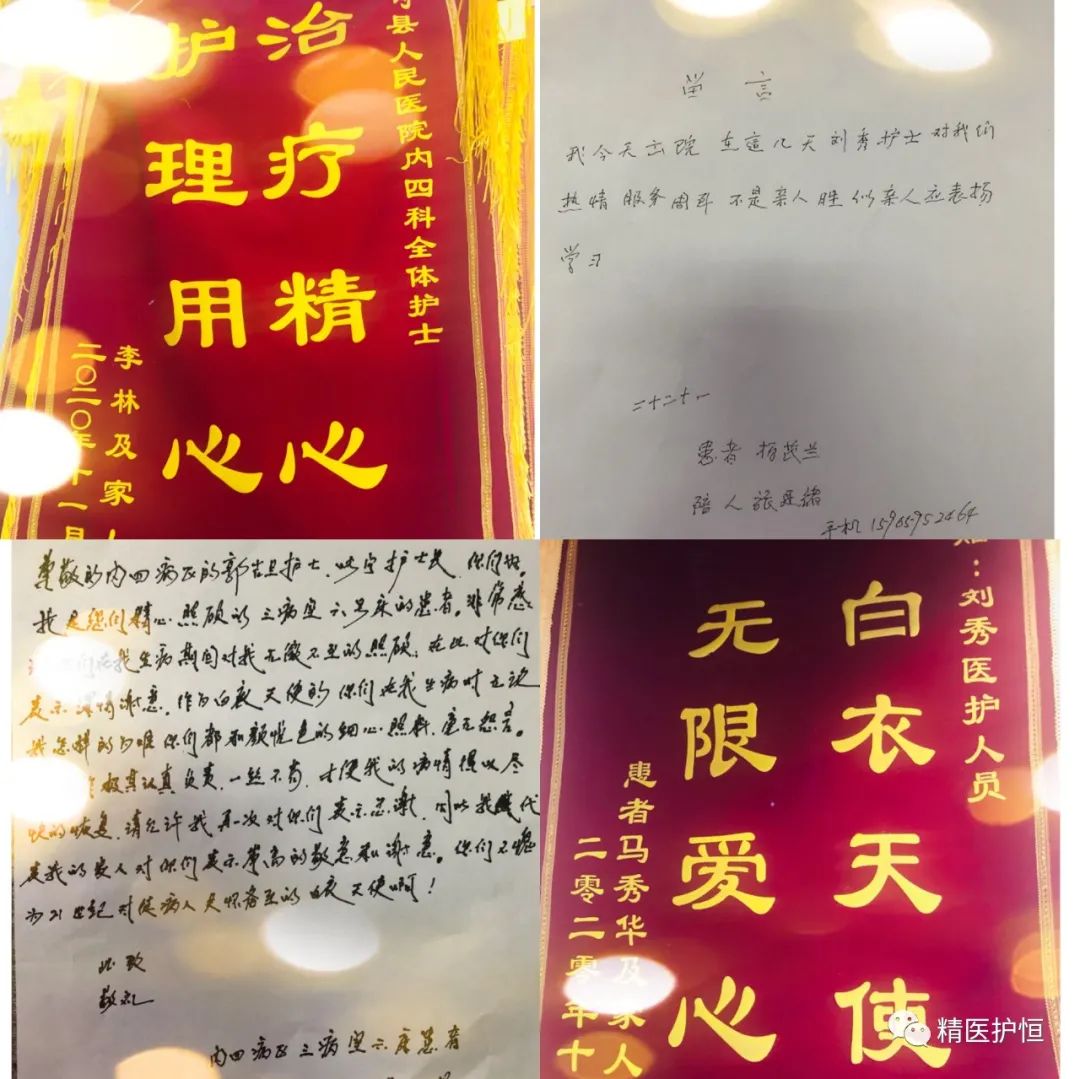 县人民医院内四科全体护士
治疗精心
护理用心
李林及家
二〇二〇年十一月
留言
我今天出院 在这几天刘秀护士对我们
热情服务周到 不是亲人胜似亲人应表扬
学习
二十二十.一
患者 杨茂兰
陪人张廷绪
手机 15965952464
尊敬的内四病区的郭吉旦护士、宁护士长，你们好。
我是您们精心照顾的三病室六号床的患者。非常感
们在我生病期间对我无微不至的照顾，在此对你们
表示深情谢意。作为白衣天使的你们在我生病时无论
我怎样的刁难你们都和颜悦色的细心照料，毫无怨言。
极其认真负责，一丝不苟，才使我的病情得以尽
快的恢复，请允许我再次对你们表示感谢，同时我代
表我的家人对你们表示崇高的敬意和谢意。你们不愧
为21世纪对待病人关怀备至的白衣天使啊！
此致
敬礼
内四病区三病室六床患者
：刘秀医护人员
白衣天使
无限爱心
患者马秀华及家人
二零二零年十
精医护恒